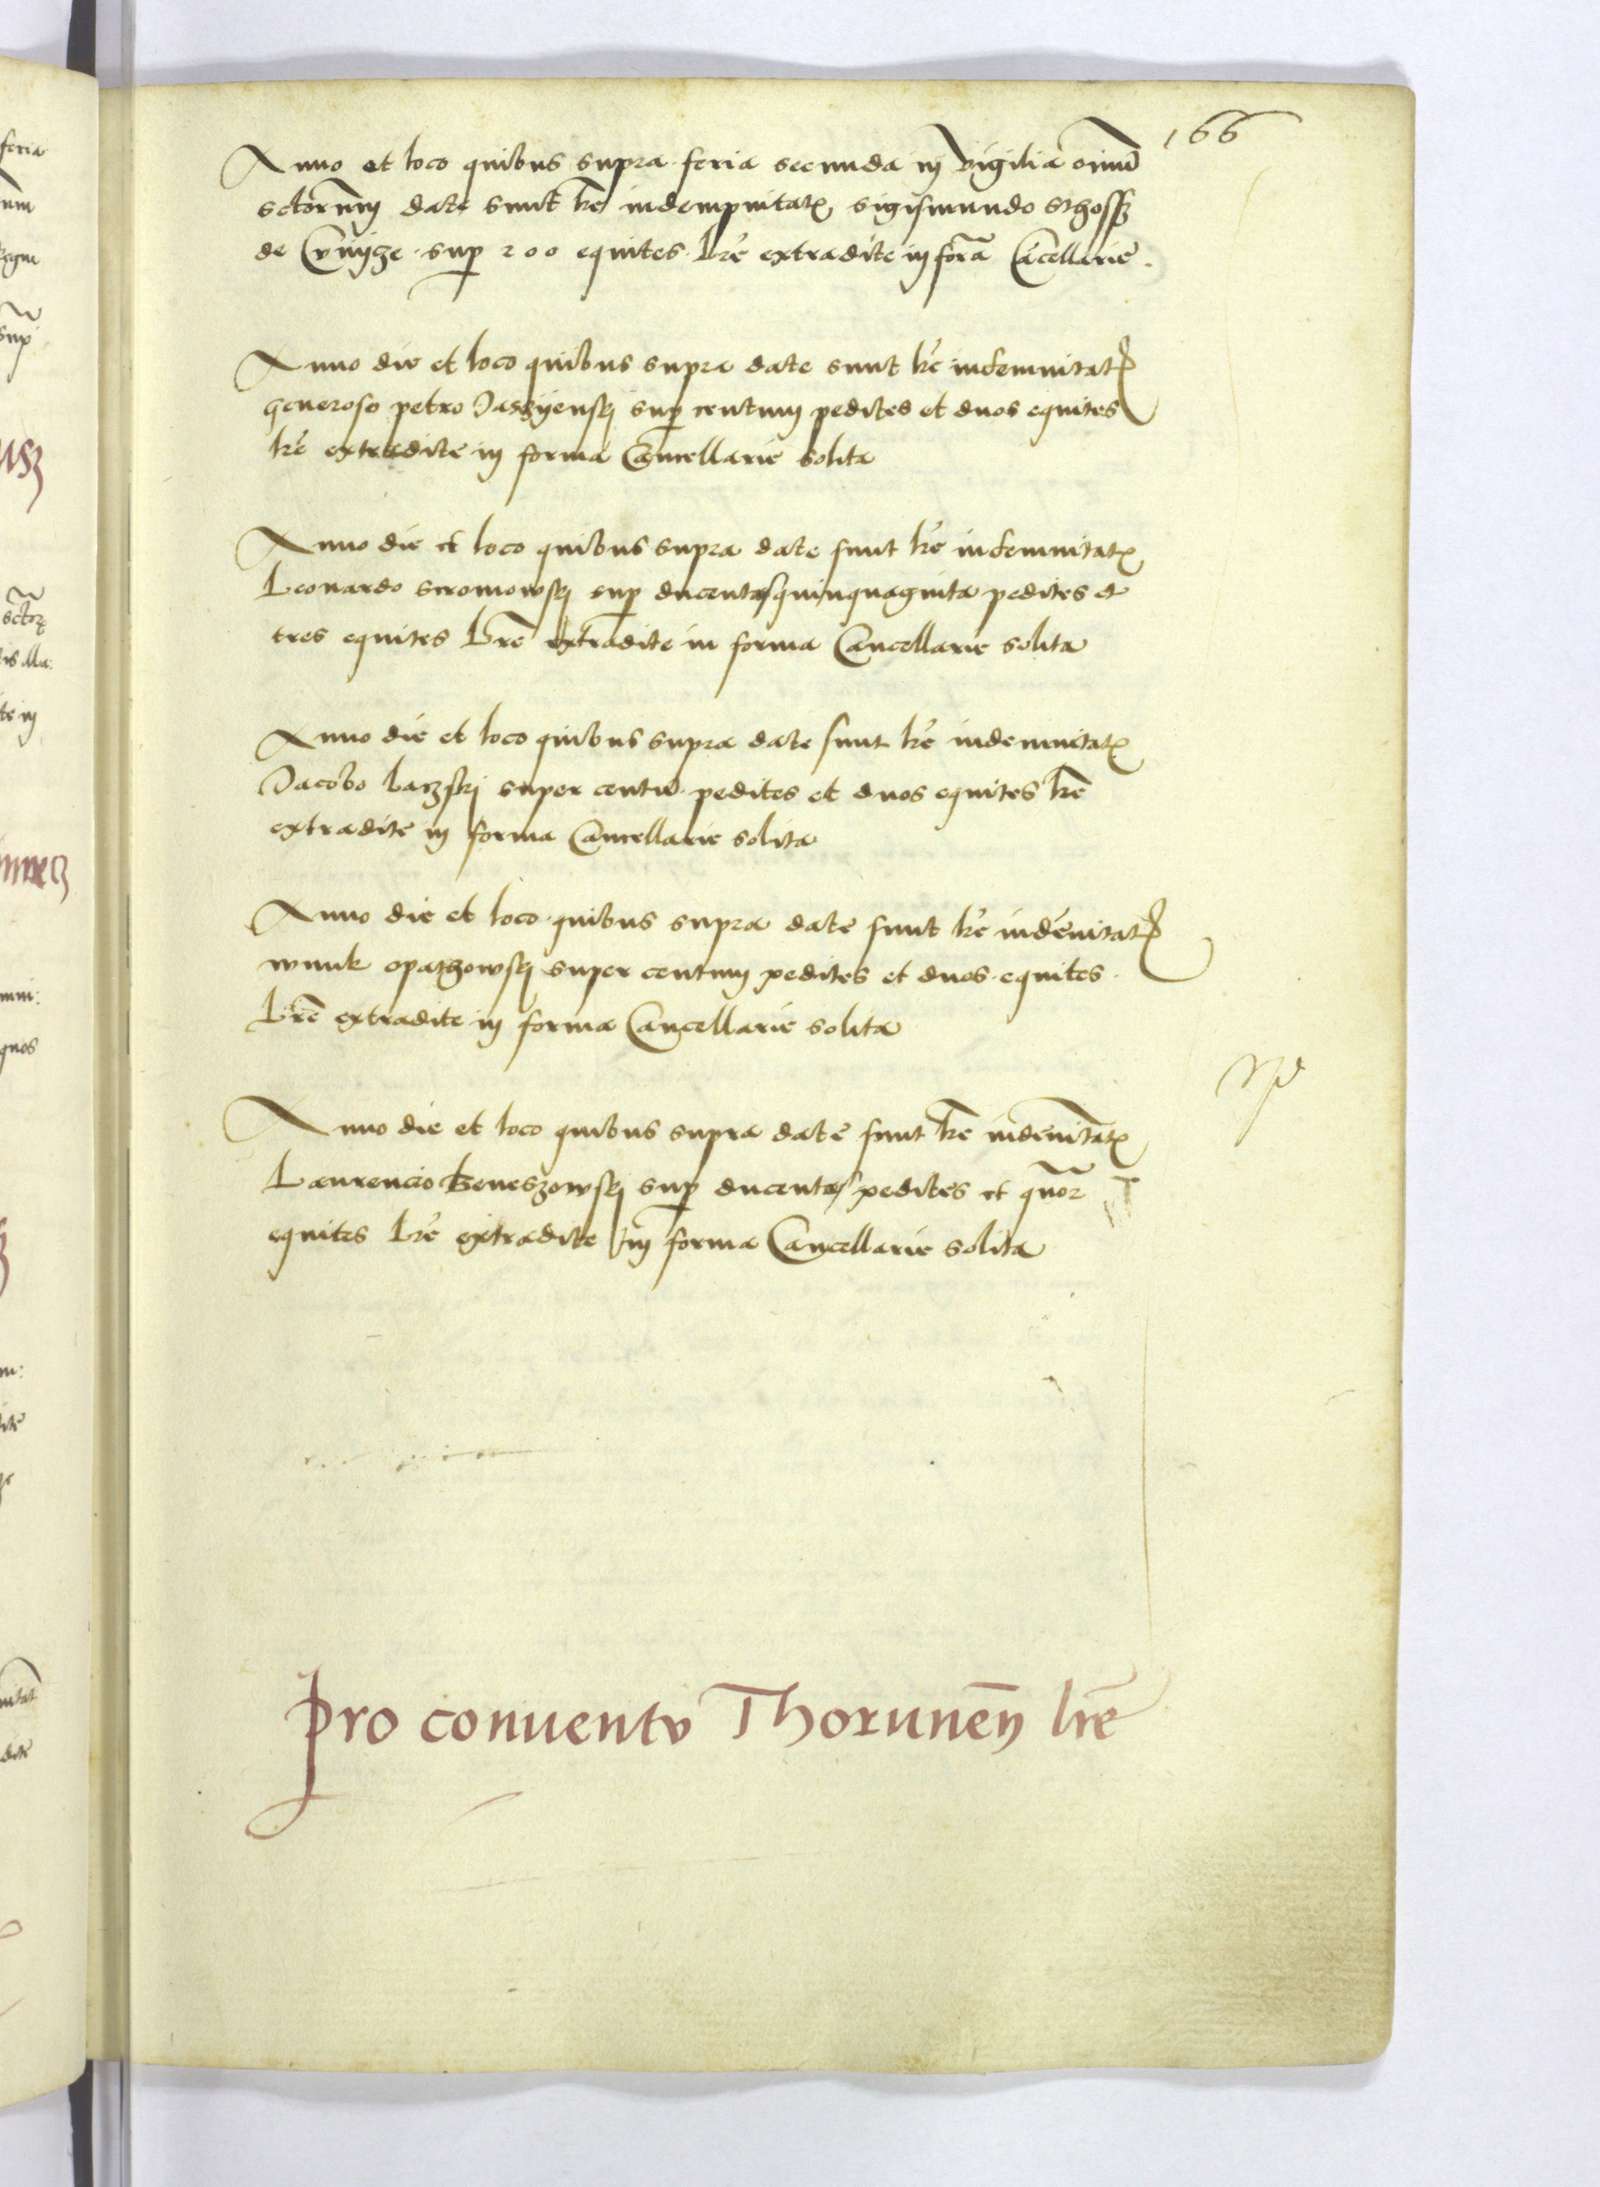 166
Anno et loco quibus supra feria secunda in vigilia oīmū
sctorum date sunt lrē indempnitatꝭ Sigismundo
de sup 200 equites lrē extradite in forā Cācellarie.
Anno die et loco quibus supra date sunt lrē indemnitatꝭ
generoso petro sup centum pedites et duos equites
lrē extradite in forma Cancellarie solita
Anno die et loco quibus supra date sunt lrē indemnitatꝭ
Leonardo sup ducentos quinquaginta pedites et
tres equites lrē extradite in forma Cancellarie solita
Anno die et loco quibus supra date sunt lrē indemnitatꝭ
Jacobo super centū pedites et duos equites lrē
extradite in forma Cancellarie solita
Anno die et loco quibus supra date sunt lrē indēnitatꝭ
wnuk opathowskj super centum pedites et duos equites
lrē extradite in forma Cancellarie solita
Anno die et loco quibus supra date sunt lrē indēnitatꝭ
Laurencio sup ducentos pedites et quōr
equites lrē extradite in forma Cancellarie solita
Pro conuentv Thorunēn lrē